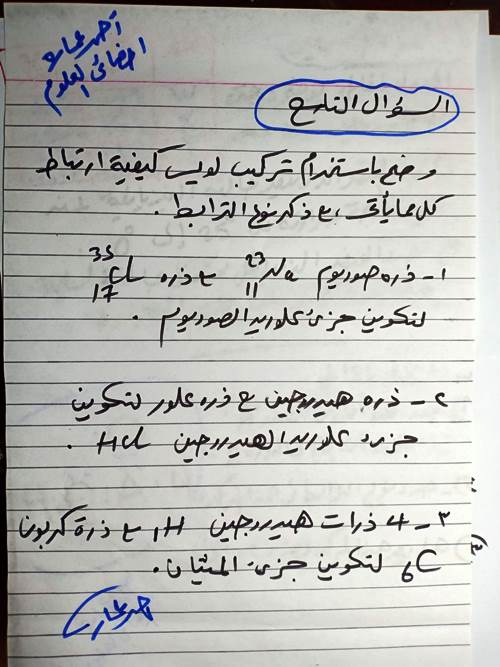 أحمد
اخصائى العلوم
السؤال التاسع
وضح باستخدام تركيب لويس كيفية ارتباط
كل مما يأتى ، مع ذكر نوع الترابط .
١ - ذره صوديوم ²³₁₁Na مع ذره ³⁵₁₇Cl
لتكوين جزئ كلوريد الصوديوم .
٢ - ذره هيدروجين مع ذره كلور لتكوين
جزئ كلوريد الهيدروجين HCl .
٣ - ٤ ذرات هيدروجين ₁H مع ذرة كربون
₆C لتكوين جزئ الميثان .